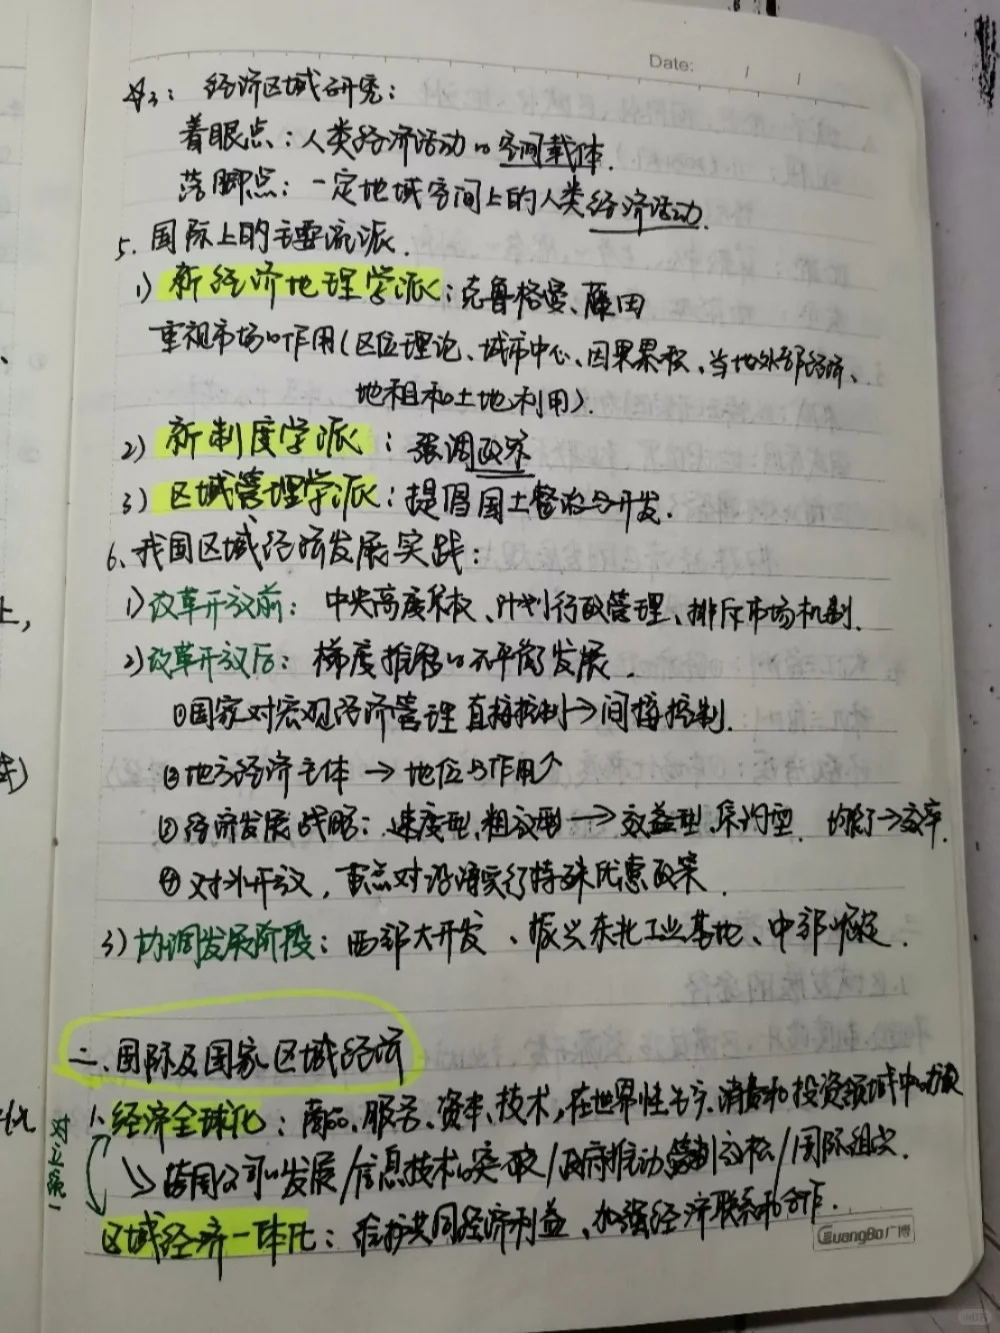 Date: / /
经济区域研究：
着眼点：人类经济活动的空间载体.
落脚点：一定地域空间上的人类经济活动.
5. 国际上的主要流派.
1) 新经济地理学派：克鲁格曼、藤田
重视市场的作用(区位理论、城市中心、因果累积、当地外部经济、
地租和土地利用).
2) 新制度学派：强调政策
3) 区域管理学派：提倡国土整治与开发.
6. 我国区域经济发展实践：
1) 改革开放前：中央高度集权、计划行政管理、排斥市场机制.
2) 改革开放后：梯度推移的不平衡发展.
①国家对宏观经济管理 直接控制→间接控制.
②地方经济主体→地位与作用↑
③经济发展战略：速度型、粗放型→效益型、集约型. →效率.
④对外开放，重点对沿海实行特殊优惠政策.
3) 协调发展阶段：西部大开发、振兴东北工业基地、中部崛起.
二. 国际及国家区域经济
1. 经济全球化：商品、服务、资本、技术，在世界性生产、消费和投资领域中的扩散
↘ 跨国公司的发展/信息技术的突破/政府推动 管制放松/国际组织.
对立统一
区域经济一体化：维护共同经济利益、加强经济联系和合作.
GuangBo广博
小红书